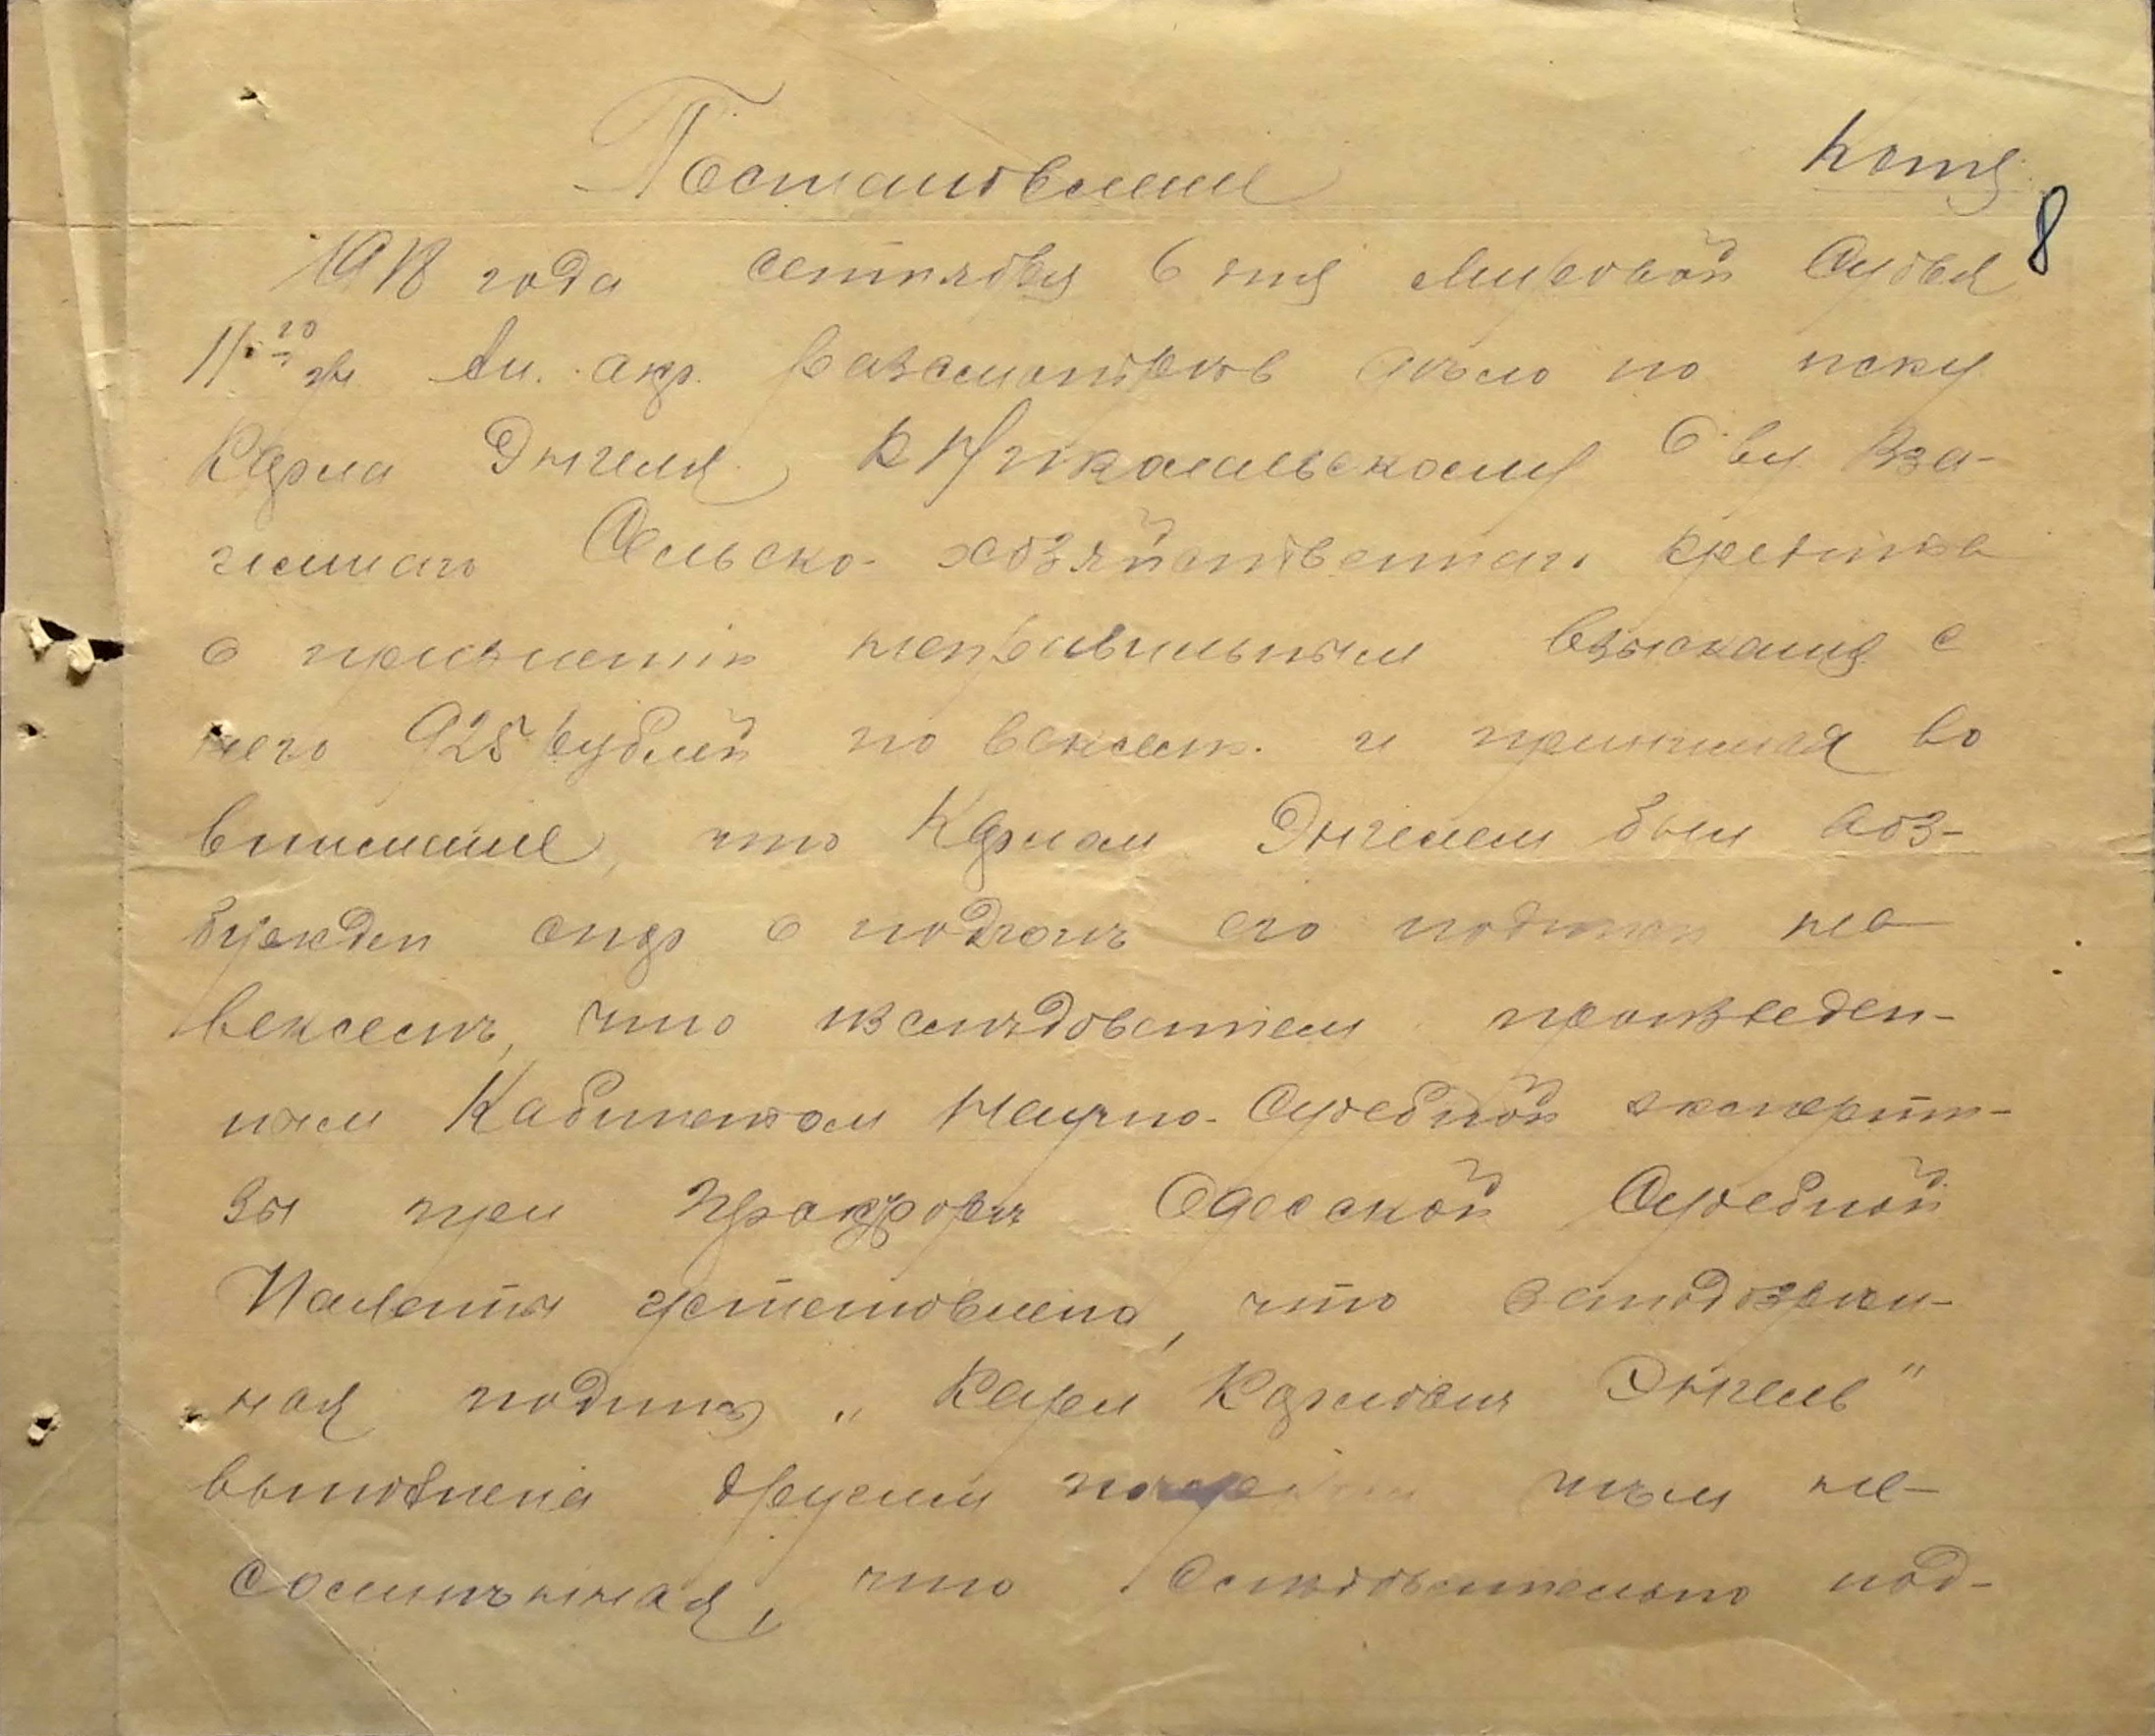 Постановление
Копія
8
1918 года сентября 6 дня Мировой Судья
11го уч. Ан. окр. Разсмотрев дѣло по иску
Карла Энгеля, к Николаевскому О-ву Вза-
имнаго Сельско-хозяйственнаго кредита
о признанiи неправильным взыскания с
него 925 рублей по векселю и принимая во
внимание, что Карлом Энгелем был воз-
бужден спор о подлогѣ его подписи на
векселѣ, что изслѣдованiем произведен-
ным Кабинетом Научно-Судебной эксперти-
зы при Прокурорѣ Одесской Судебной
Палаты установлено, что заподозрен-
ная подпись „Карл Карлович Энгель"
выполнена другим почерком чѣм не-
сомнѣнная, что следовательно под-